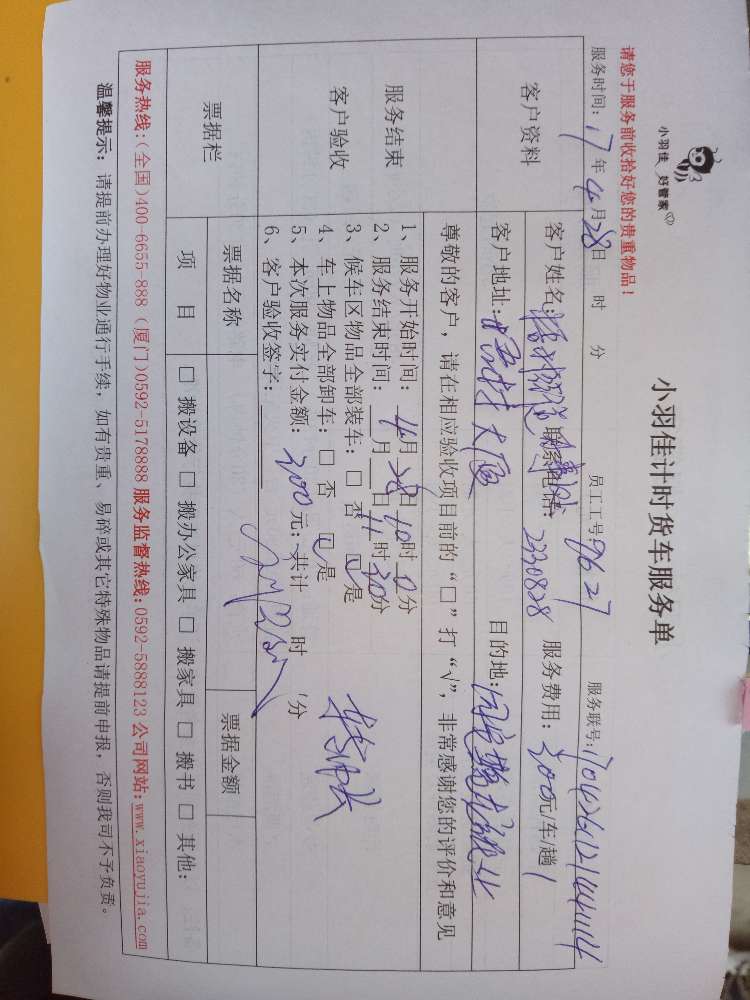 小羽佳 好管家
小羽佳计时货车服务单
请您于服务前收拾好您的贵重物品！
服务时间：17年4月28日 时 分 员工工号：9627 服务联号：
客户资料
客户姓名： 联系电话：2330828 服务费用：300元/车/趟
客户地址： 大厦 目的地：
服务结束
客户验收
尊敬的客户，请在相应验收项目前的“□”打“√”，非常感谢您的评价和意见
1、服务开始时间：4月28日10时0分
2、服务结束时间：__月__日11时30分
3、候车区物品全部装车：□ 否 ☑ 是
4、车上物品全部卸车：□ 否 ☑ 是
5、本次服务实付金额：300元；共计 时 分
6、客户验收签字：
票据栏
票据名称 票据金额
项 目 □ 搬设备 □ 搬办公家具 □ 搬家具 □ 搬书 □ 其他：
服务热线：（全国）400-6655-888（厦门）0592-5178888 服务监督热线：0592-5888123 公司网站：www.xiaoyujia.com
温馨提示：请提前办理好物业通行手续，如有贵重、易碎或其它特殊物品请提前申报，否则我司不予负责。